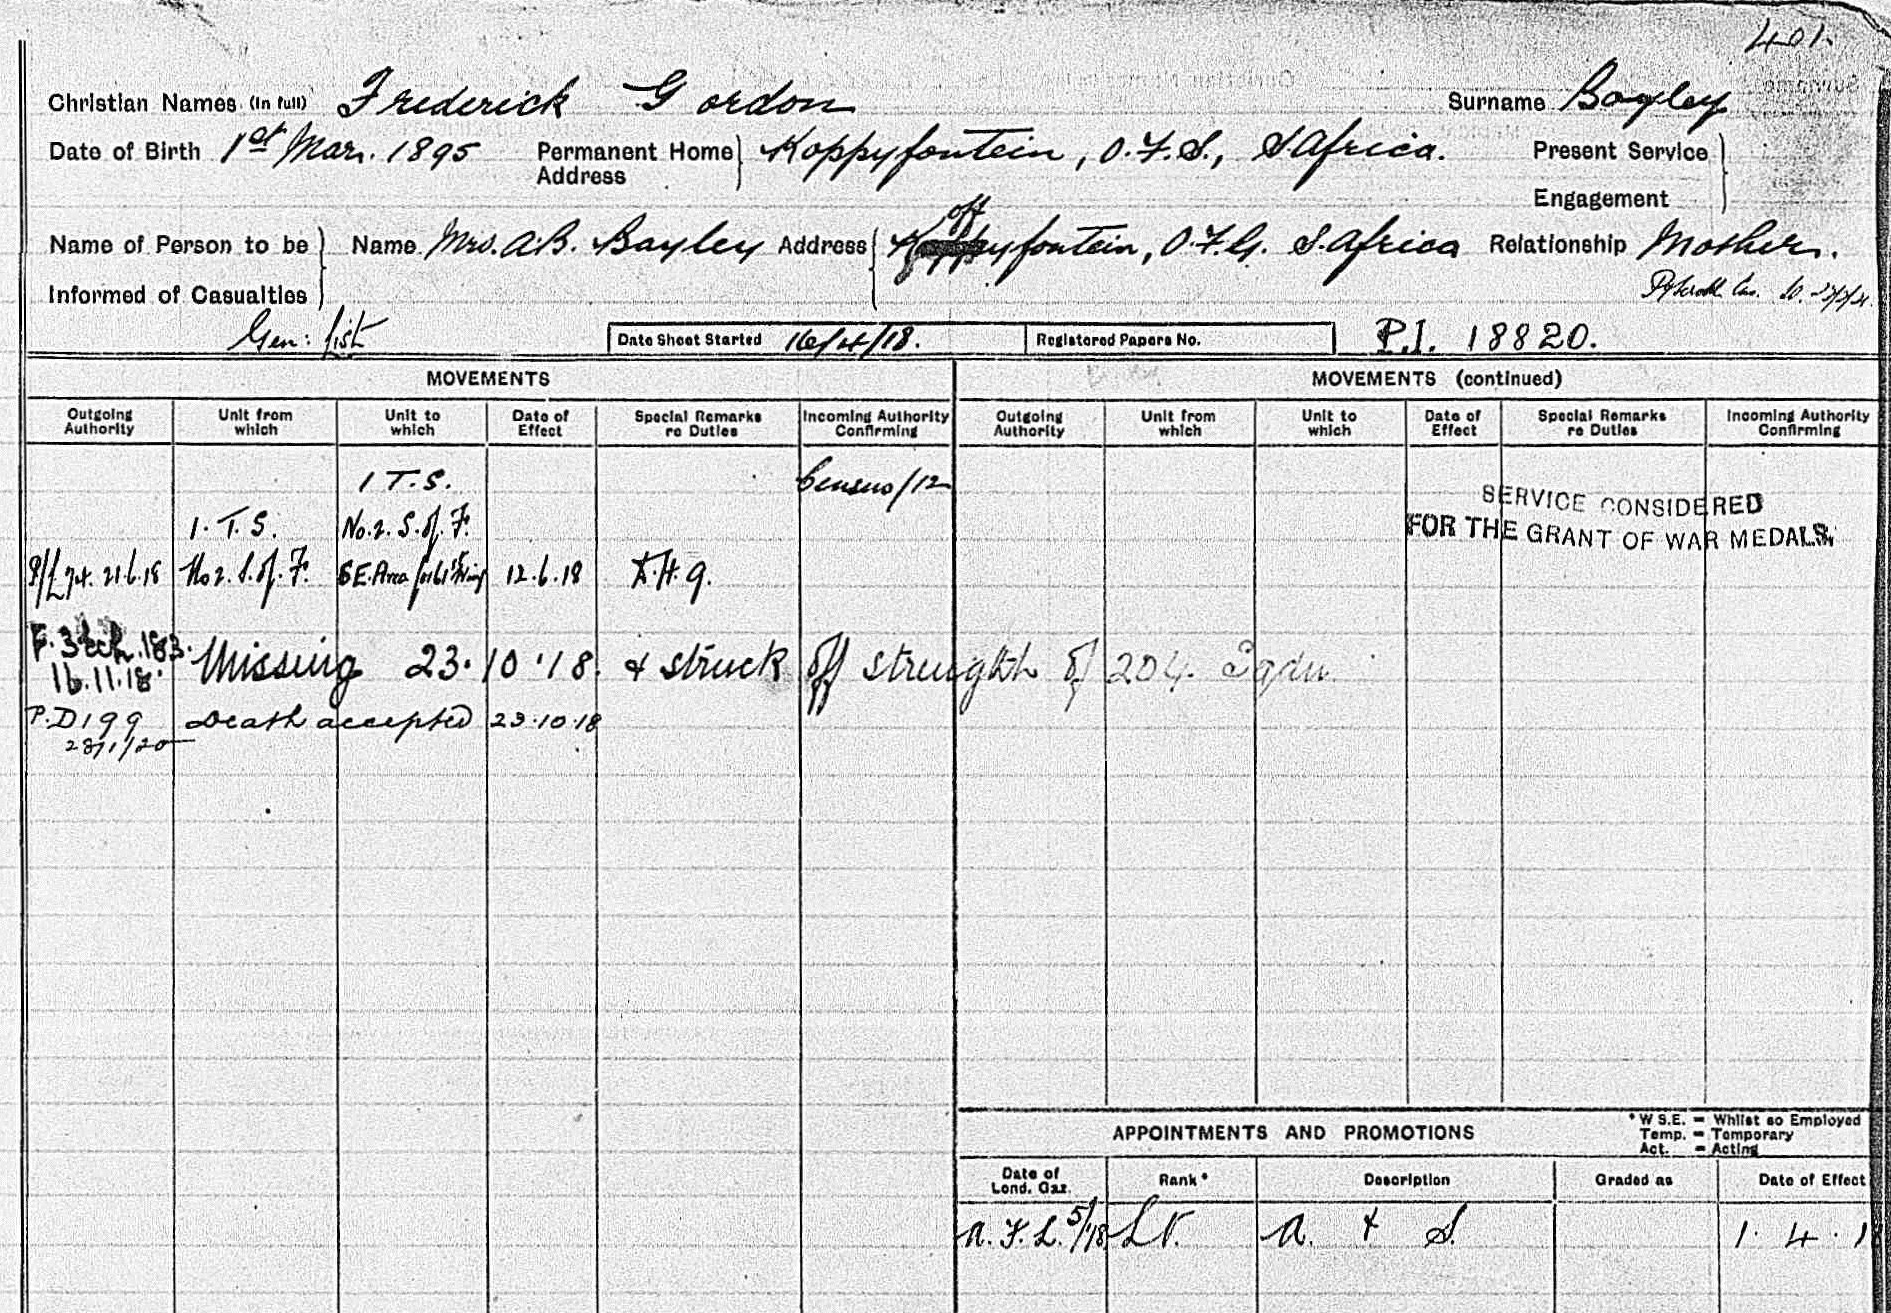 401.
Christian Names (in full) Frederick Gordon Surname Bayley
Date of Birth 1st Mar. 1895 Permanent Home Address Koppyfontein, O.F.S., S Africa. Present Service
Engagement
off
Name of Person to be Name Mrs. A.B. Bayley Address fontein, O.F.S. S. Africa Relationship Mother.
Informed of Casualties
Gen: List Date Sheet Started 16/4/18. Registered Papers No. P.I. 18820.
MOVEMENTS MOVEMENTS (continued)
Outgoing Authority Unit from which Unit to which Date of Effect Special Remarks re Duties Incoming Authority Confirming Outgoing Authority Unit from which Unit to which Date of Effect Special Remarks re Duties Incoming Authority Confirming
1 T.S. Census/12
1. T.S. No. 2. S. of F.
21.6.18 No 2. S. of F. S E. Area 12.6.18
SERVICE CONSIDERED
FOR THE GRANT OF WAR MEDALS.
183.
16.11.18. Missing 23.10.18. & struck off strength of 204. Sqdn.
P.D 199 Death accepted 23.10.18
28/1/20
APPOINTMENTS AND PROMOTIONS
* W S.E. = Whilst so Employed
Temp. = Temporary
Act. = Acting
Date of Lond. Gaz. Rank * Description Graded as Date of Effect
A. F. L. 5/18 Lt. A. & S. 1. 4. 1